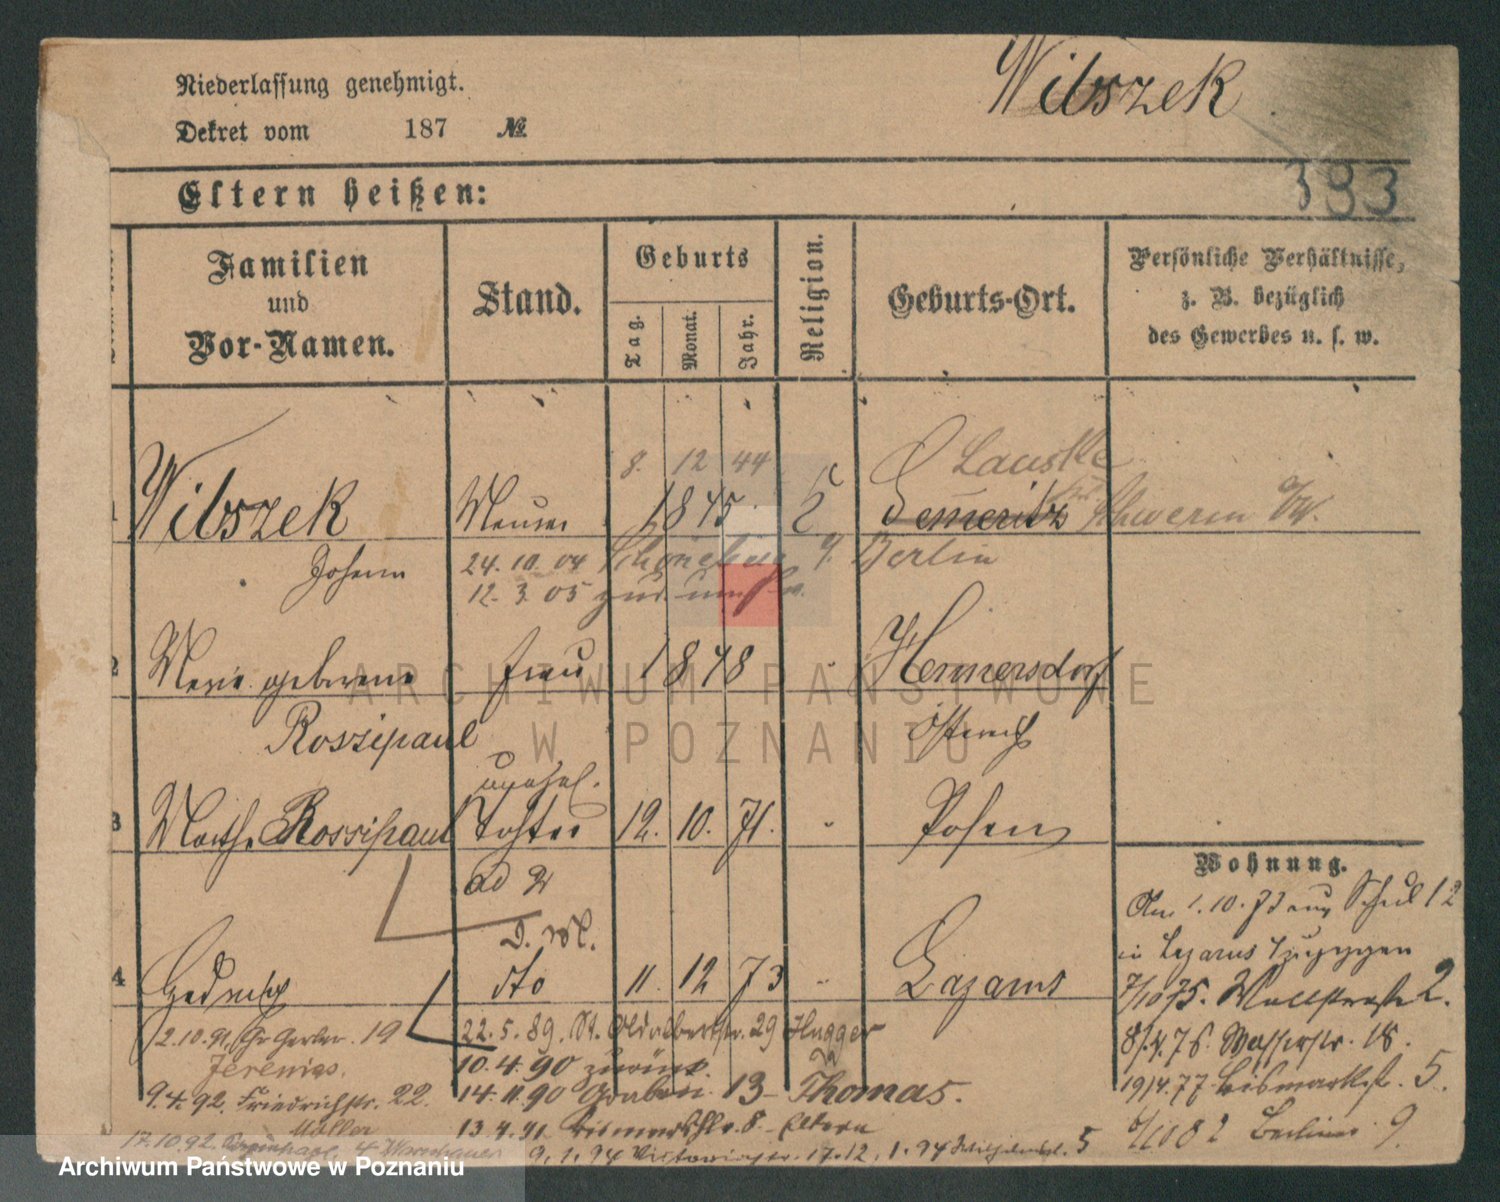 Niederlassung genehmigt.
Wibszek
Dekret vom 187 №
383
Eltern heißen:
Familien
und
Vor-Namen.
Stand.
Geburts
Tag.
Monat.
Jahr.
Religion.
Geburts-Ort.
Persönliche Verhältnisse,
z. B. bezüglich
des Gewerbes u. s. w.
8. 12 44
Lauske
1 Wibszek Maurer 1845 Schwerin a/W.
Johann 24.10.04 Schöneberg b. Berlin
12.3.05
2 Marie geborene Frau 1848 Hennersdorf
Rossipaul Östereich
unehel.
3 Martha Rossipaul Tochter 12. 10. 71. Posen
ad 2
D. M.
4 Hedwig dto 11 12 73 Lazarus
Wohnung.
Am 1.10.73 aus Schul 12
in Lazarus
7/10 75. Wallstraße 2.
8/4.76. Wasserstr. 18.
19/4.77 Bismarkst. 5.
6/10 82 Berliner 9.
2.10.91, Gr Gerber. 19
Jeremias.
9.4.92. Friedrichstr. 22.
Müller
17.10.92.
22.5.89. St. Adalbertstr. 29 Hugger
10.4.90 zurück.
14.11.90 Graben 13 - Thomas.
13.4.91 Bismarckstr. 8. - Eltern
9.1.94 Victoriastr. 17. 12.1.94 5
ARCHIWUM PAŃSTWOWE
W POZNANIU
Archiwum Państwowe w Poznaniu